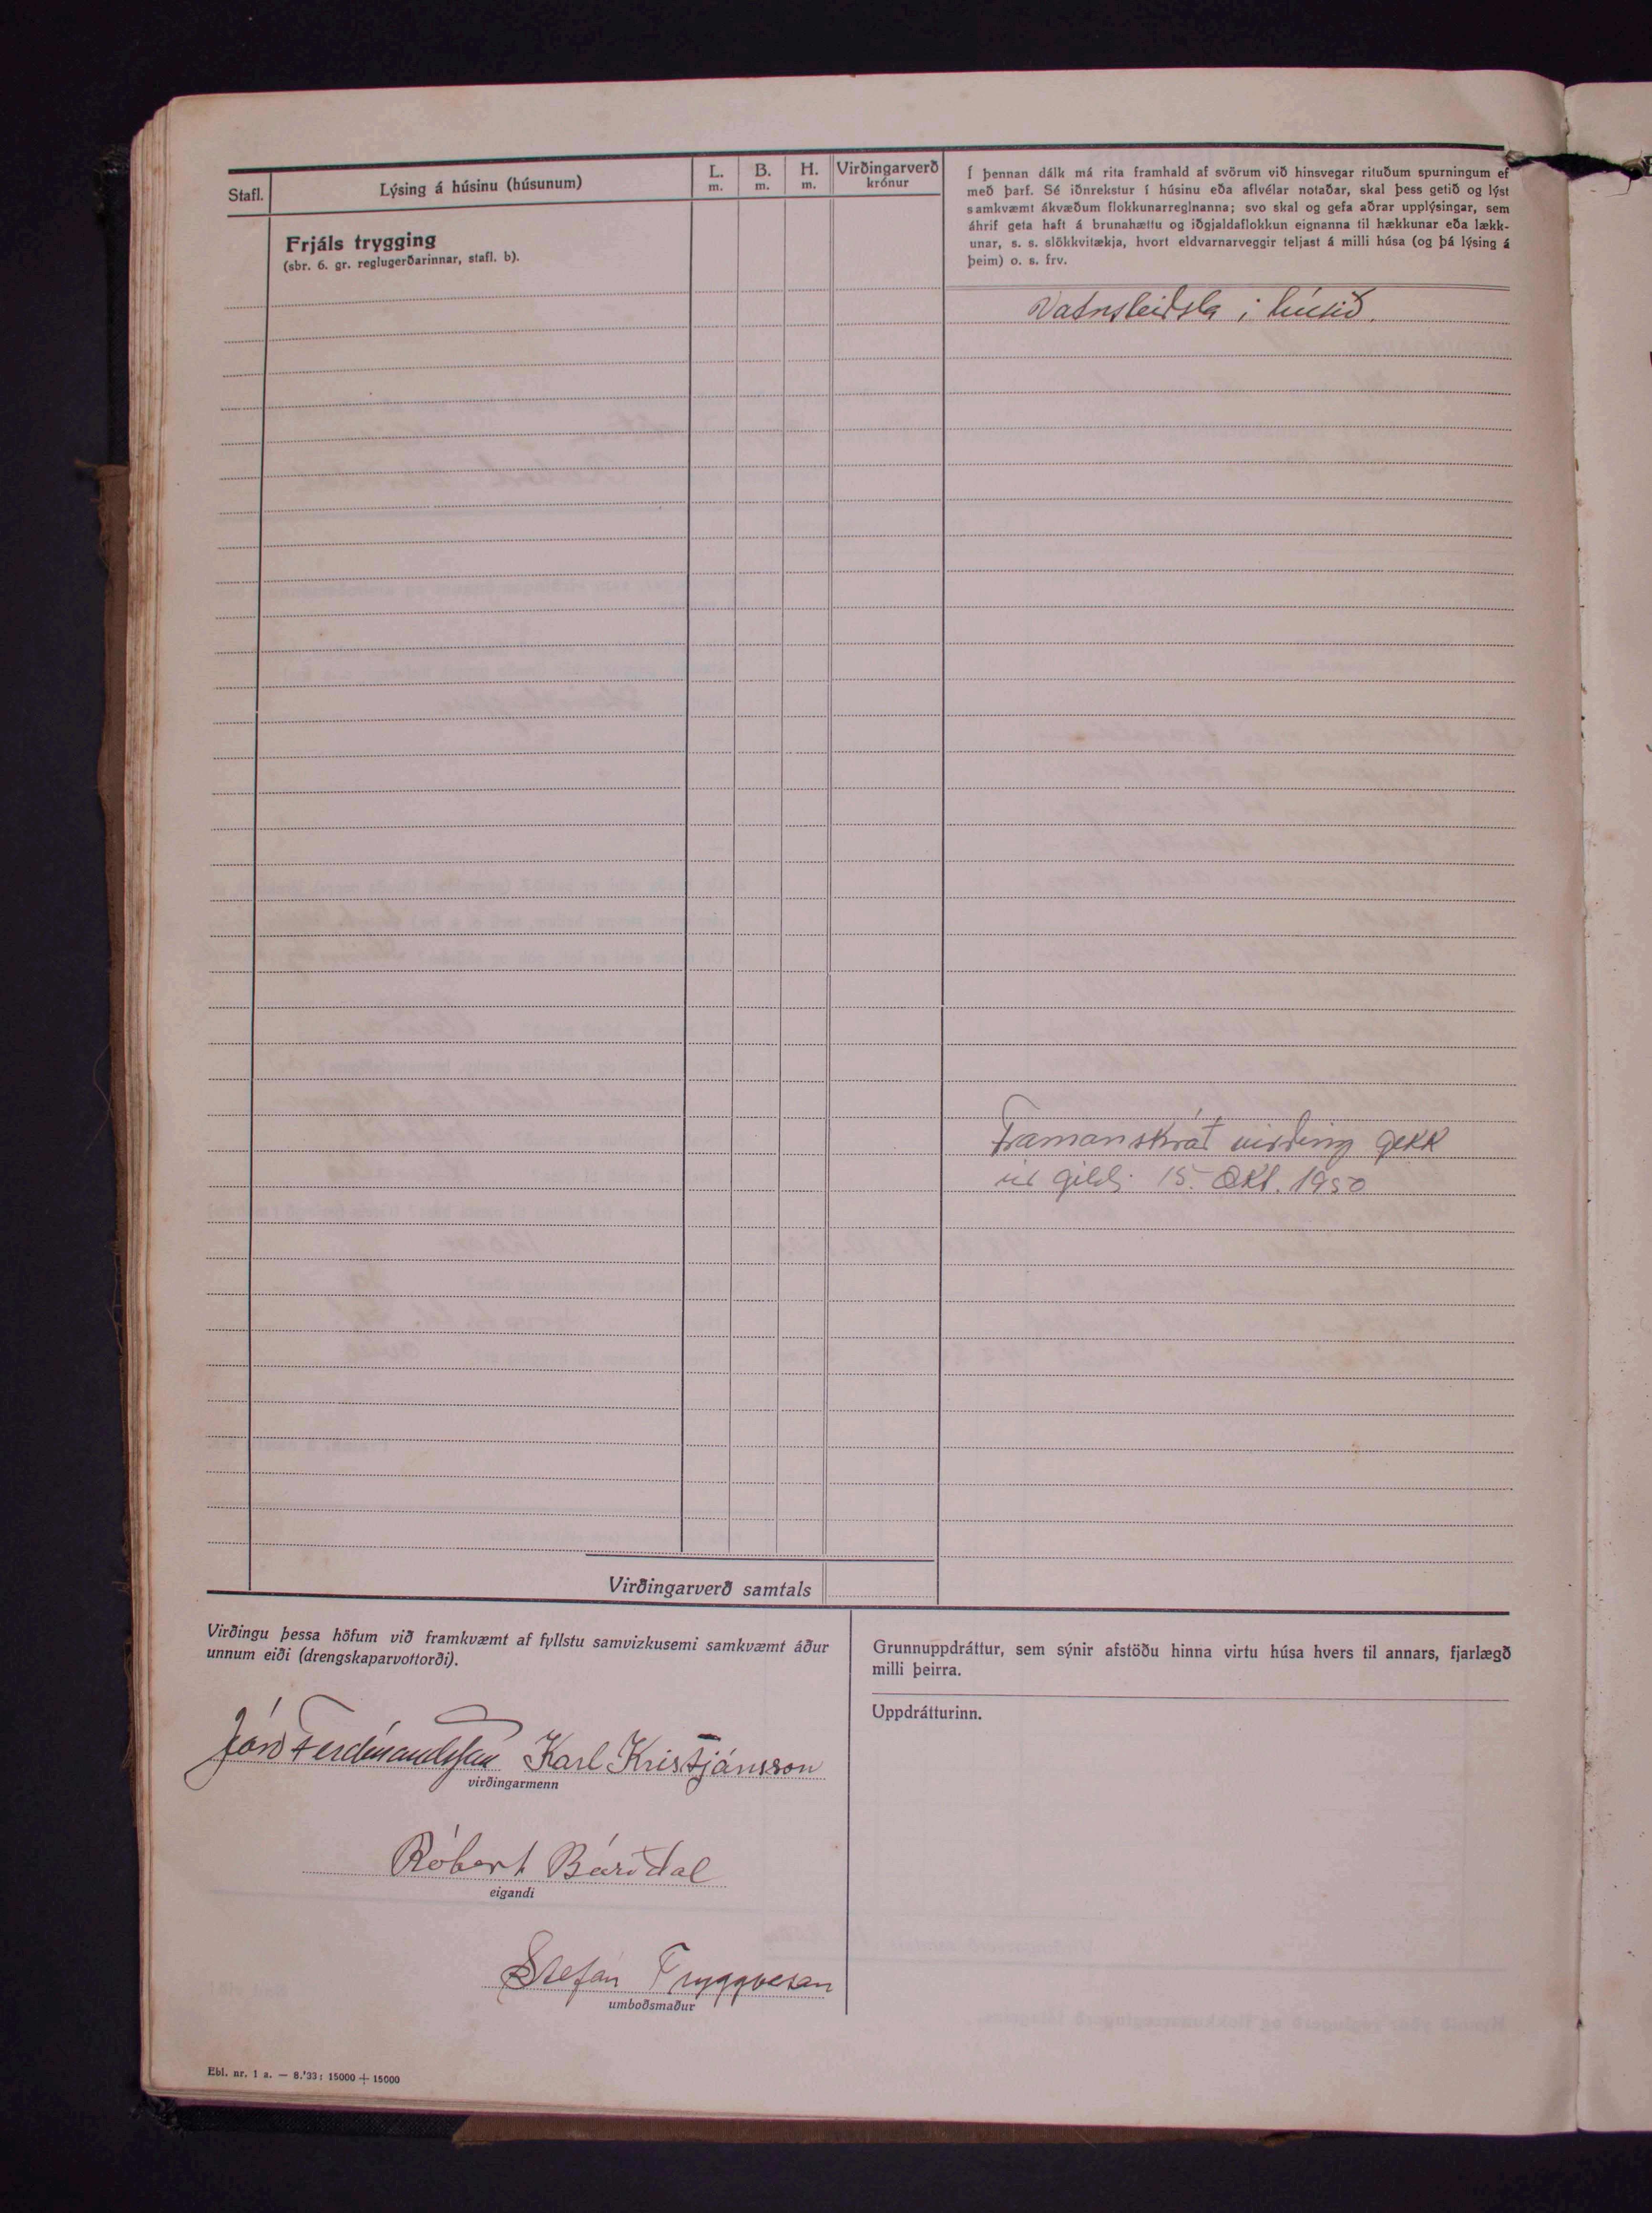 Stafl.
Lýsing á húsinu (húsunum)
L.
m.
B.
m.
H.
m.
Virðingarverð
krónur
Frjáls trygging
(sbr. 6. gr. reglugerðarinnar, stafl. b).
Í þennan dálk má rita framhald af svörum við hinsvegar rituðum spurningum ef
með þarf. Sé iðnrekstur í húsinu eða aflvélar notaðar, skal þess getið og lýst
samkvæmt ákvæðum flokkunarreglnanna; svo skal og gefa aðrar upplýsingar, sem
áhrif geta haft á brunahættu og iðgjaldaflokkun eignanna til hækkunar eða lækk-
unar, s. s. slökkvitækja, hvort eldvarnarveggir teljast á milli húsa (og þá lýsing á
þeim) o. s. frv.
Vatnsleiðsla í húsið.
Framanskráð virðing gekk
úr gildi 15. Okt. 1950
Virðingarverð samtals
Virðingu þessa höfum við framkvæmt af fyllstu samvizkusemi samkvæmt áður
unnum eiði (drengskaparvottorði).
Jón Ferdínandsson Karl Kristjánsson
virðingarmenn
Róbert Bárðdal
eigandi
Stefán Tryggvason
umboðsmaður
Grunnuppdráttur, sem sýnir afstöðu hinna virtu húsa hvers til annars, fjarlægð
milli þeirra.
Uppdrátturinn.
Ebl. nr. 1 a. — 8.'33; 15000 + 15000